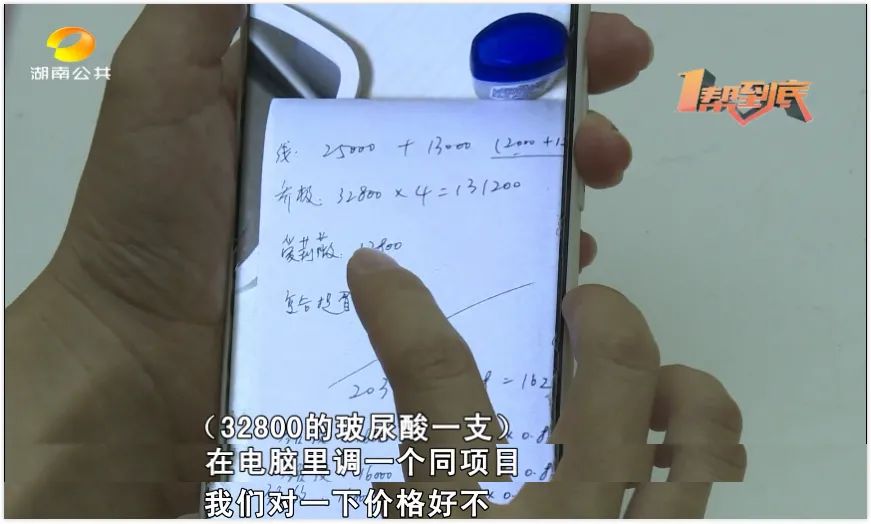 湖南公共
1帮到底
线: 25000 + 13000 (12000 + 1
乔极: 32800 × 4 = 131200
爱莉薇:
复合提
203
= 162
× 0.8
16000
0.8
× 0.
(32800的玻尿酸一支)
在电脑里调一个同项目
我们对一下价格好不